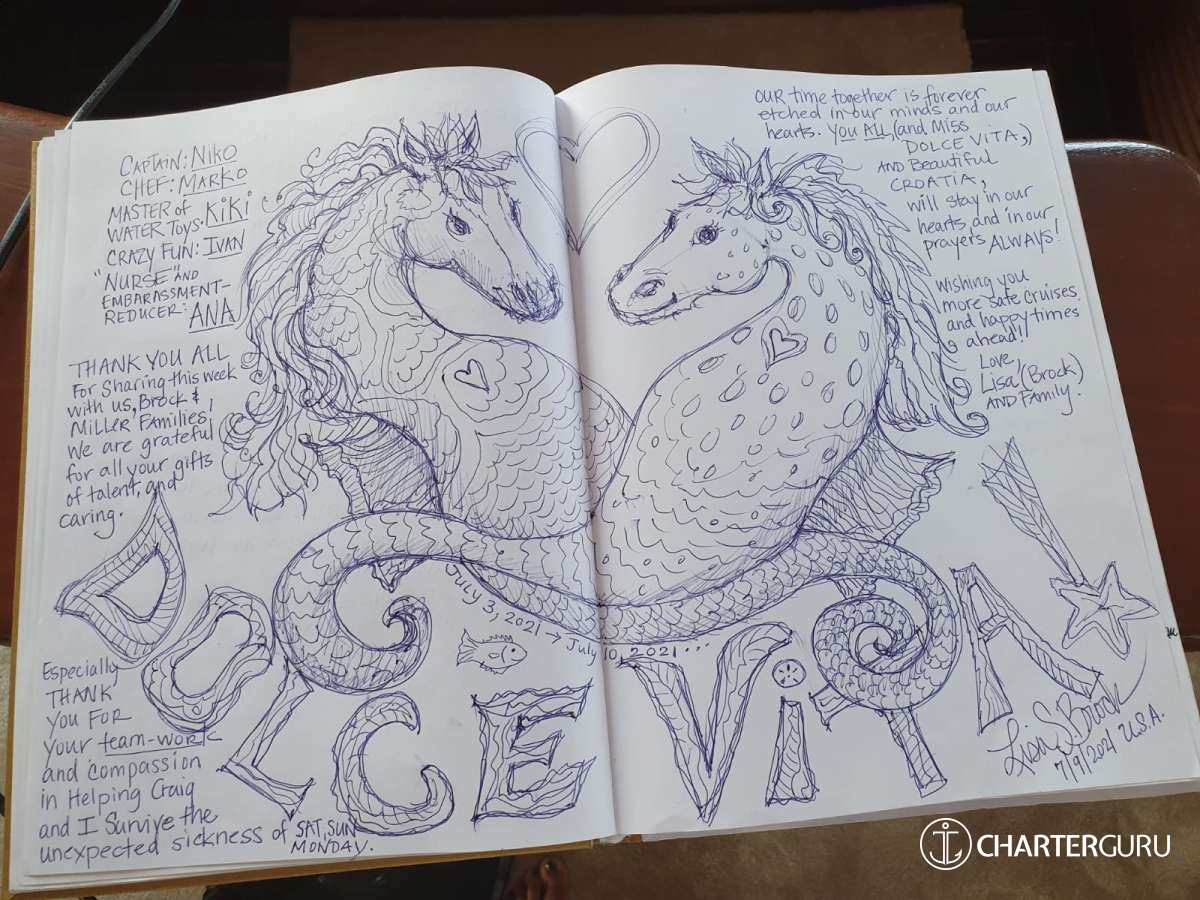 CAPTAIN: NIKO
CHEF: MARKO
MASTER of
WATER TOYS: KiKi
CRAZY FUN: IVAN
"NURSE" AND
EMBARASSMENT-
REDUCER: ANA
THANK YOU ALL
For Sharing this week
with us, Brock &
MILLER FAMILIES,
We are grateful
for all your gifts
of talent, and
caring.
Especially
THANK
YOU FOR
your team-work
and compassion
in Helping Craig
and I Survive the
unexpected sickness of SAT, SUN
MONDAY.
OUR time together is forever
etched in our minds and our
hearts. You ALL, (and Miss
DOLCE VITA,)
AND Beautiful
CROATIA,
will stay in our
hearts and in our
prayers ALWAYS!
Wishing you
more safe cruises
and happy times
ahead!!
Love
Lisa (Brock)
AND Family.
July 3, 2021 → July 10, 2021 ...
DOLCE ViTA
Lisa S. Brock
7/9/2021 U.S.A.
CHARTERGURU